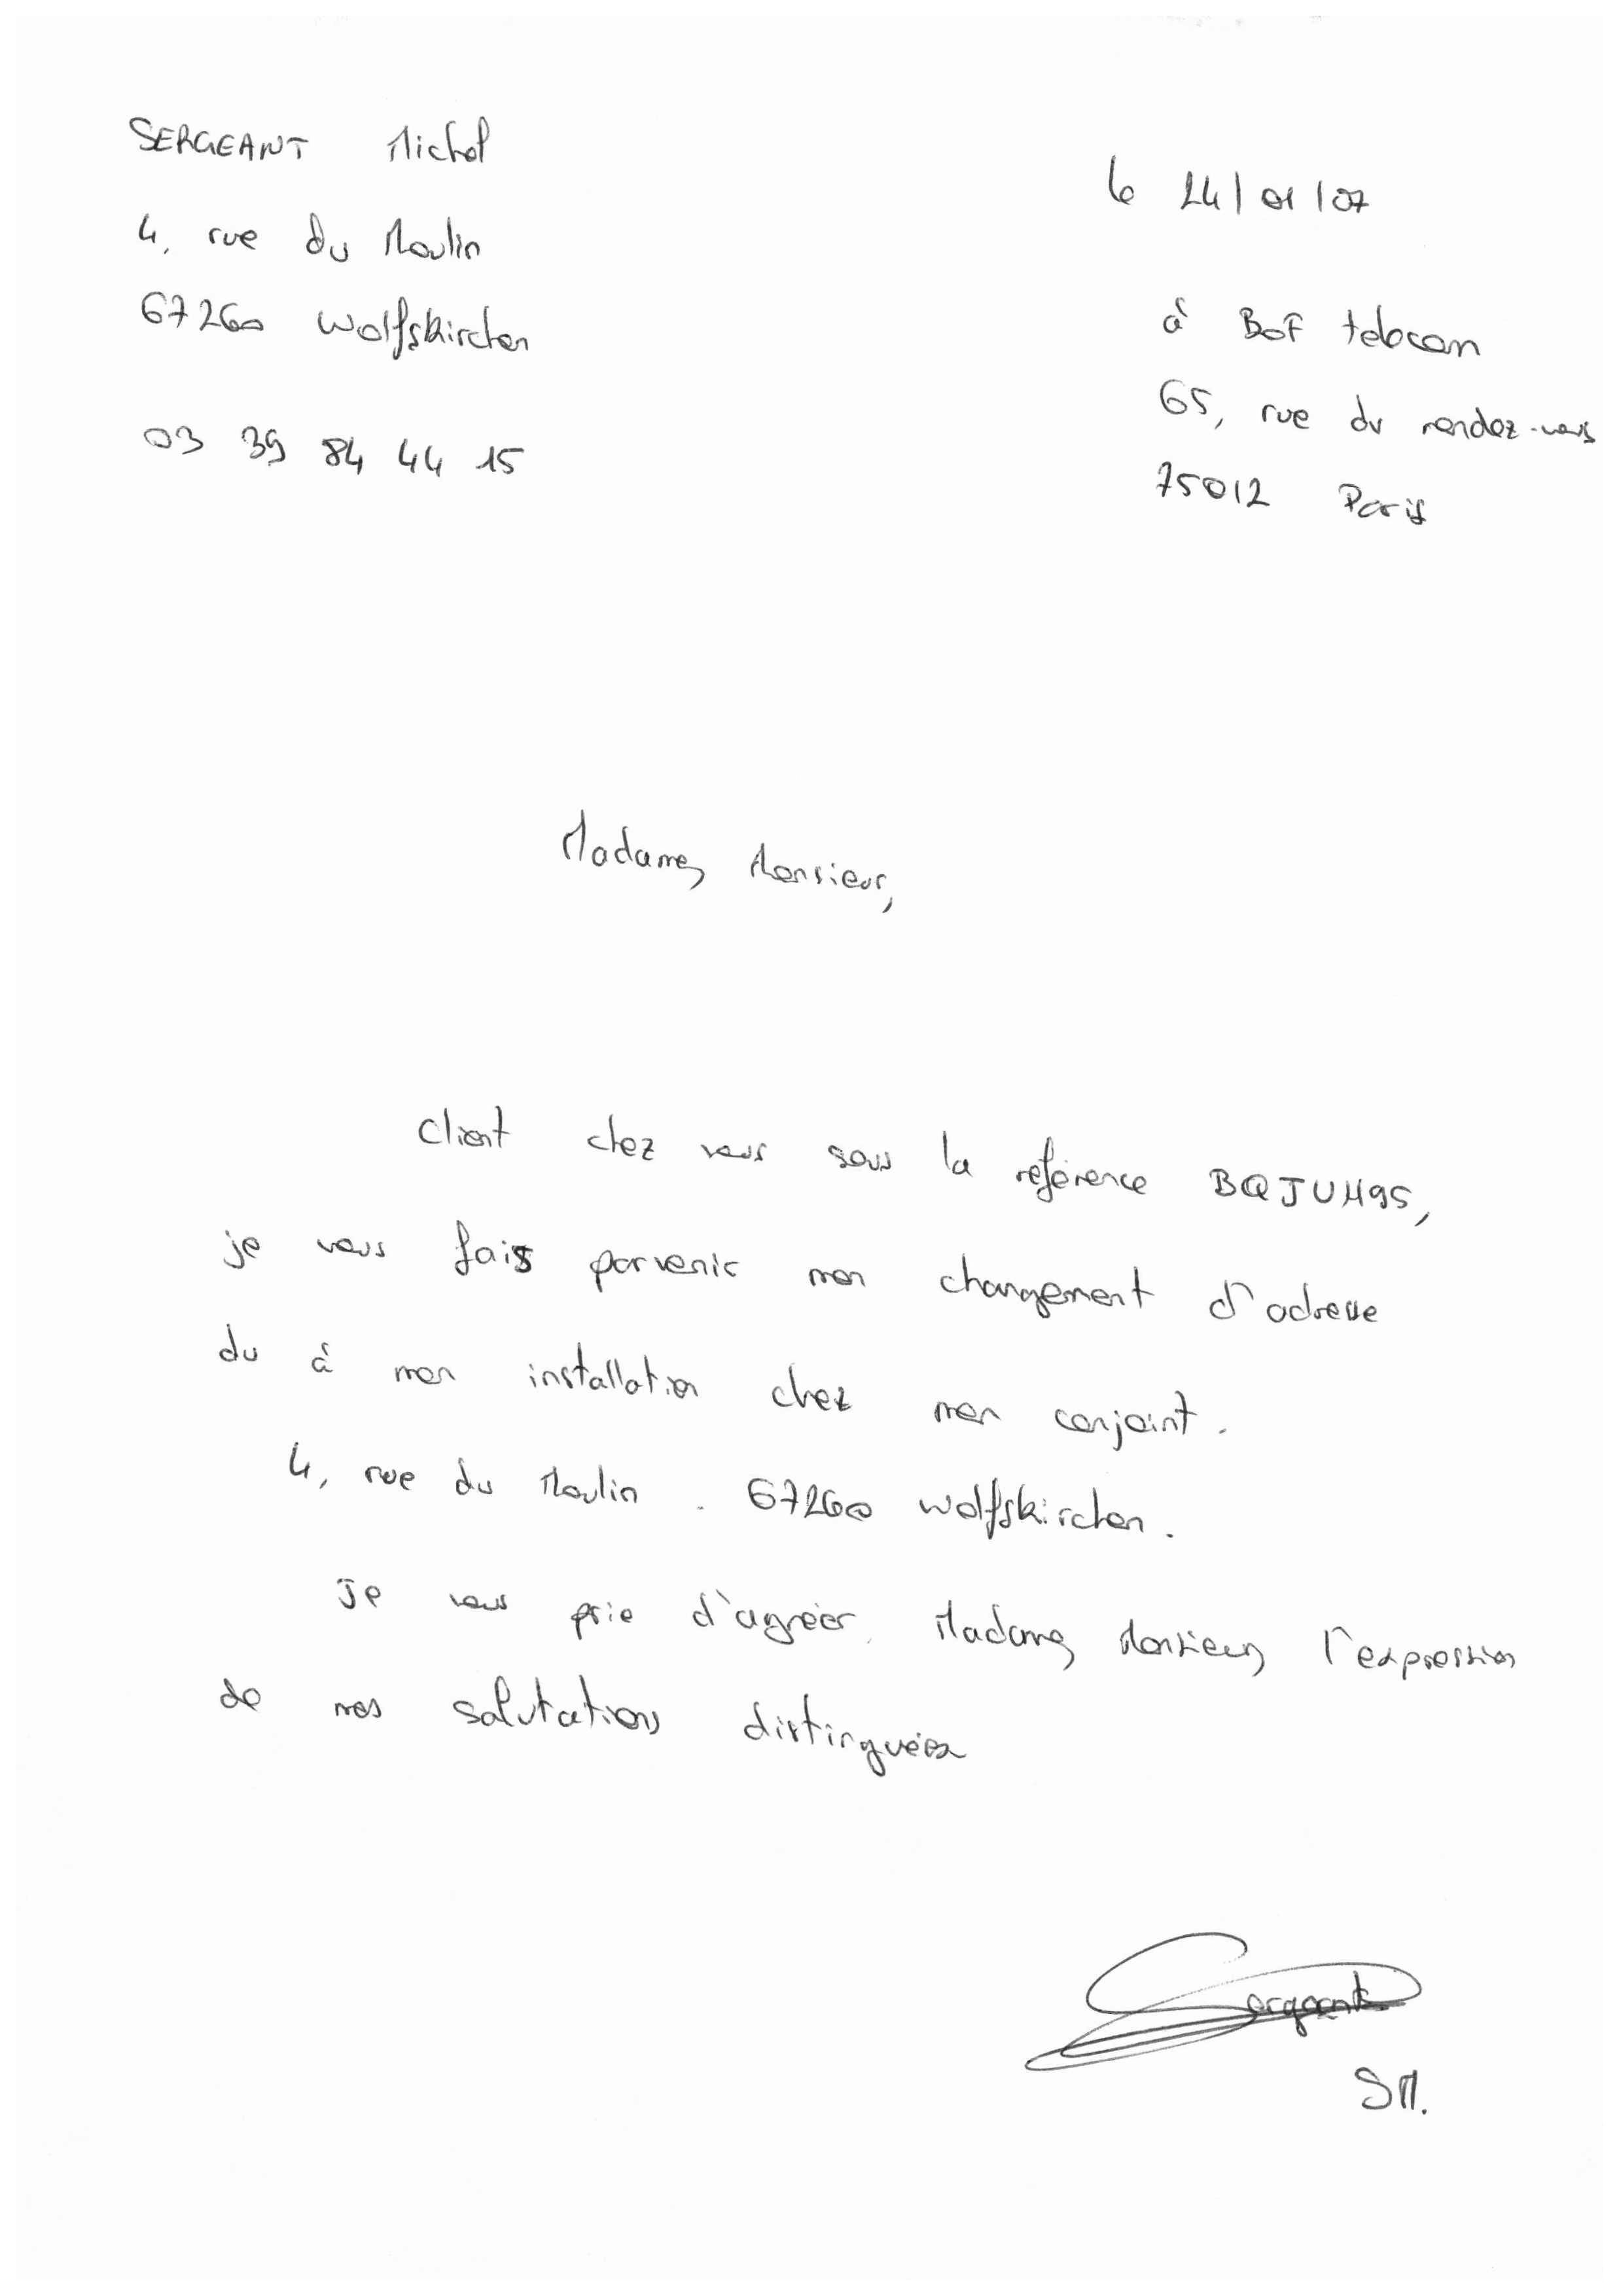 SERGEANT Michel
4, rue du Moulin
67260 Wolfskirchen
03 39 84 44 15
le 24/01/07
à BoF telecom
65, rue du rendez-vous
75012 Paris
Madame, Monsieur,
Client chez vous sous la référence BQJUH95,
je vous fais parvenir mon changement d'adresse
du à mon installation chez mon conjoint.
4, rue du Moulin - 67260 Wolfskirchen.
Je vous prie d'agréer, Madame, Monsieur, l'expression
de mes salutations distinguées
Sergeant
SM.